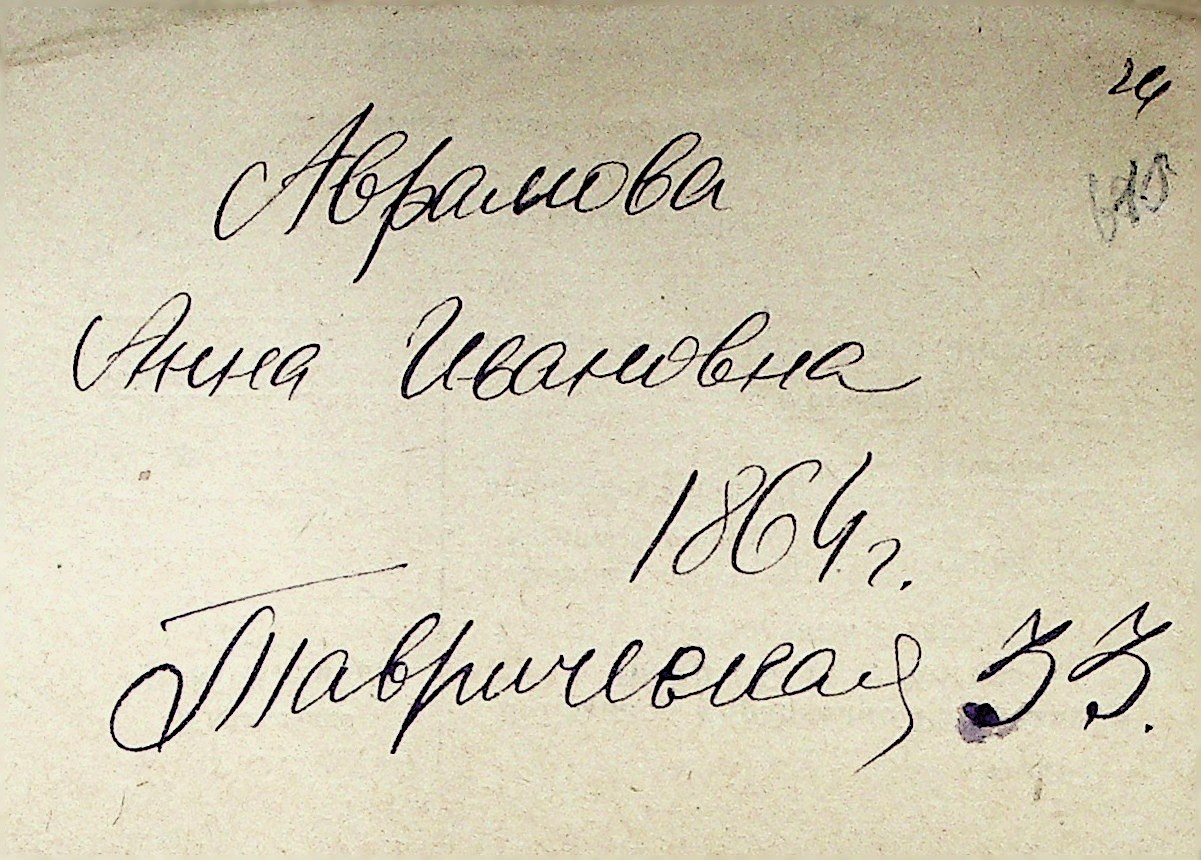 24
Аврамова
Анна Ивановна
1864 г.
Таврическая 33.